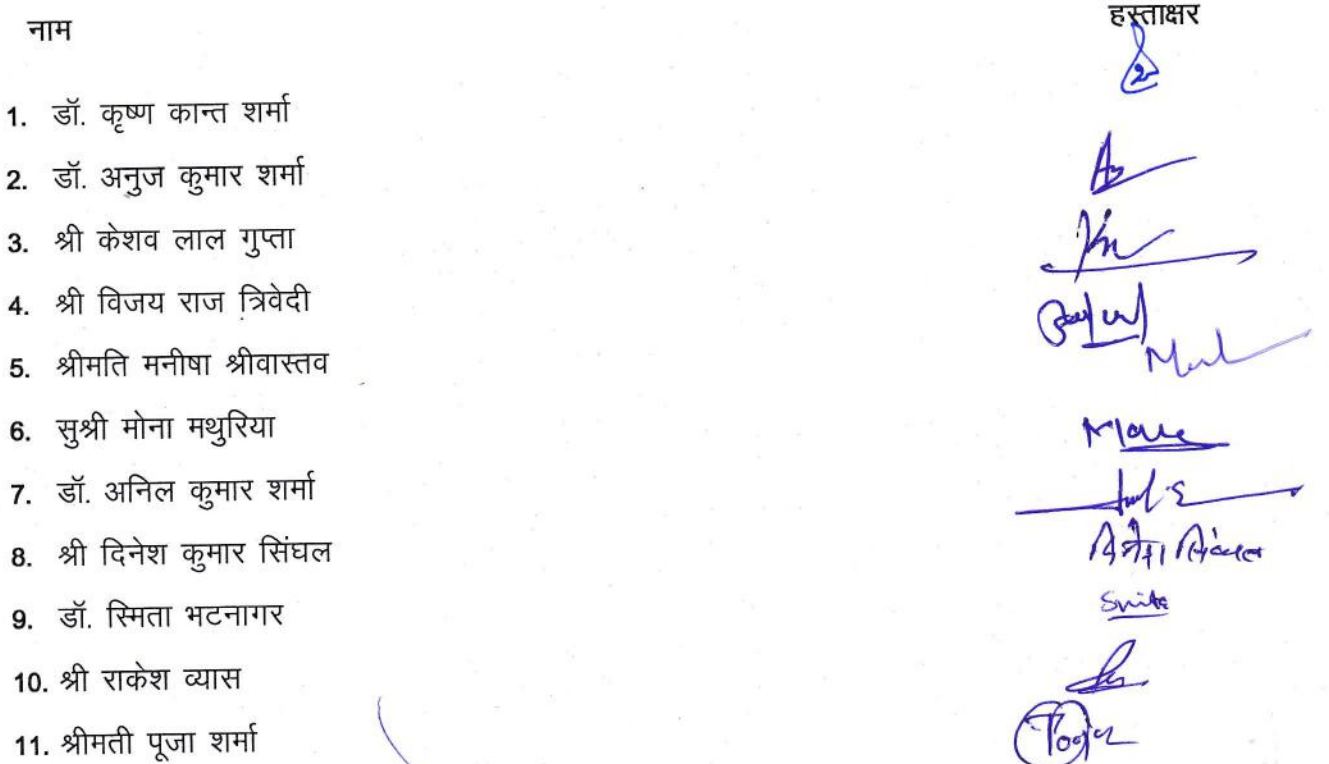 नाम हस्ताक्षर
1. डॉ. कृष्ण कान्त शर्मा
2. डॉ. अनुज कुमार शर्मा
3. श्री केशव लाल गुप्ता
4. श्री विजय राज त्रिवेदी
5. श्रीमति मनीषा श्रीवास्तव
6. सुश्री मोना मथुरिया
7. डॉ. अनिल कुमार शर्मा
8. श्री दिनेश कुमार सिंघल दिनेश सिंघल
9. डॉ. स्मिता भटनागर
10. श्री राकेश व्यास
11. श्रीमती पूजा शर्मा